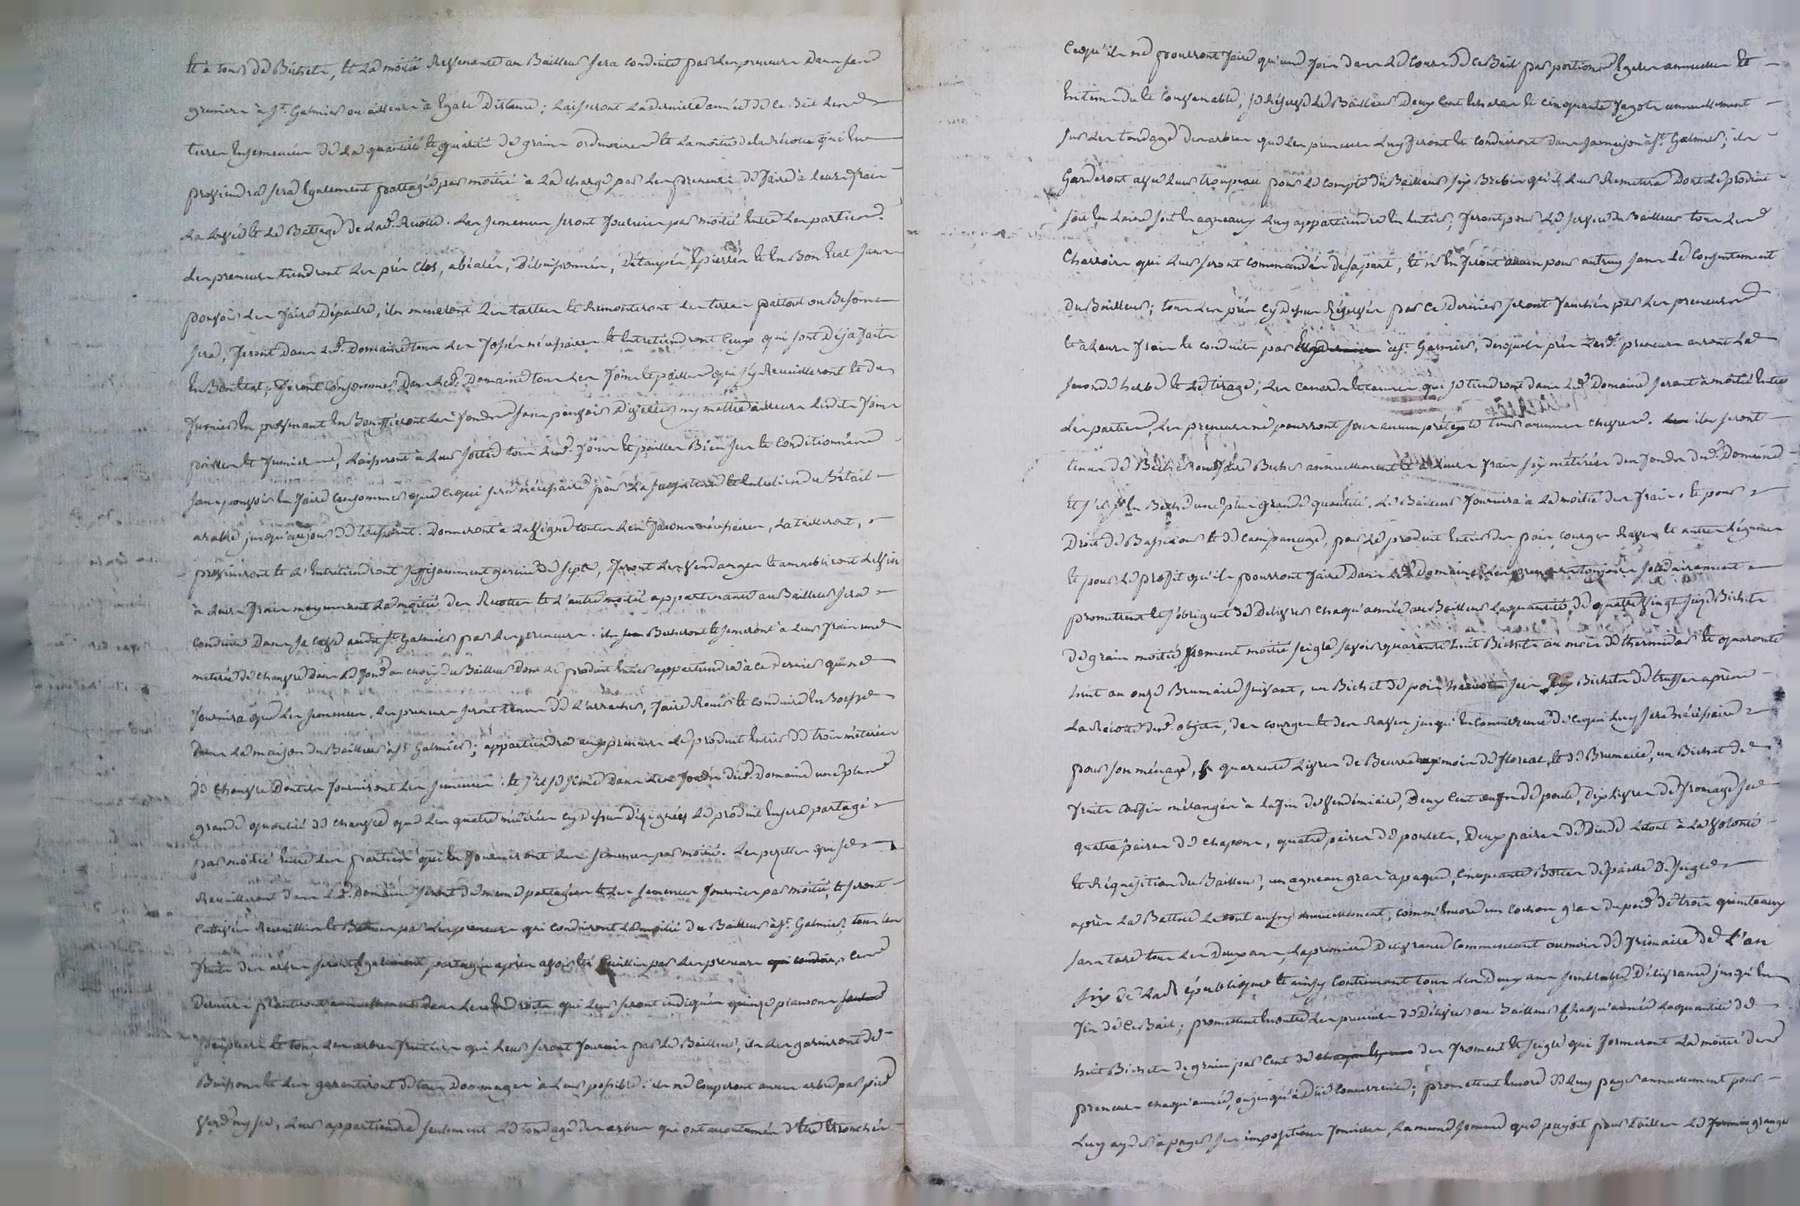 et à tous de Bichets, et la moitié Revenante au Bailleur sera conduite par les preneurs dans ses
greniers à St. Galmier ou ailleurs à Egale Distance; Laisseront la derniere année de ce Bail les
terres Ensemencées de la quantité et qualité de grains ordinaires et la moitié de la récolte qui en
proviendra sera Egalement partagée par moitié à la charge par les preneurs de faire à leurs frais
La Levée et le Battage de lad. Recolte. Les semences seront fournies par moitié entre les parties.
Les preneurs tiendront les prés clos, abéalés, Débuissonnés, Détaupés Epierrés et en Bon Etat sans
pouvoir les faire Dépaitre, ils meneront les tartres et Remonteront les terres partout ou Besoin
sera, feront dans led. Domaine tous les fossés nécessaires et entretiendront ceux qui sont Déjà faits
En Bon Etat; feront consommer dans led. Domaine tous les foins et pailles qui s'y Recueilleront et du
fumier en provenant en Bonifieront les fonds sans pouvoir Divertir ny mettre ailleurs lesdits foins
pailles et fumiers, Laisseront à leur sortie tous lesd. foins et pailles Bien secs et conditionnés
sans pouvoir en faire consommer que ce qui sera nécessaire pour la nourriture et Entretien du Bétail
arable jusqu'au jour de toussaint. Donneront à la vigne toutes les façons nécessaires, La tailleront,
provineront et l'Entretiendront suffisamment garnie de seps, feront les vendanges et ameubliront le vin
à leurs frais moyennant la moitié des Recoltes et l'autre moitié appartenante au Bailleur sera
conduite dans sa cave aud. St. Galmier par les preneurs. ils Becheront et semeront à leurs frais une
meterée de chanvre dans le fond au choix du Bailleur dont le produit entier appartiendra à ce dernier qui ne
fournira que les semences, les preneurs seront tenus de l'arracher, faire Rouir et conduire en Boisses
dans la maison du Bailleur à St. Galmier; appartiendra aux preneurs le produit entier de trois meterées
de chanvre dont ils fourniront les semences: et s'il se seme dans les fonds dud. Domaine une plus
grande quantité de chanvre que les quatre meterées cy dessus désignées le produit en sera partagé
par moitié entre les parties qui en fourniront les semences par moitié. Les pezettes qui se
Recueilleront dans led. Domaine seront de meme partagées et les semences fournies par moitié, et seront
Recueillies et Battues par les preneurs qui conduiront la moitié du Bailleur à St. Galmier. tous les
fruits des arbres seront Egalement partagés après avoir été cueillis par les preneurs ces
Derniers planteront annuellement dans les Endroits qui leur seront indiqués quinze plançons
peupliers et tous les arbres fruitiers qui leur seront fournis par le Bailleur, ils les garniront de
Buissons et les garantiront de tous Dommages à leur possible: ils ne couperont aucun arbre par pied
verd ny sec, leur appartiendra seulement le tondage des arbres qui ont accoutumé d'être Ebranchés
Ce qu'ils ne pourront faire qu'une fois dans le cours de ce Bail par portions Egales annuelles et
En tems du et convenable, se réserve le Bailleur deux cent et cinquante fagots annuellement
sur les tondages des arbres que les preneurs luy feront et conduiront dans sa maison à St. Galmier; ils
Garderont avec leur troupeau pour le compte du Bailleur six Brebis qu'il leur Remettra dont le produit
soit en laine soit en agneaux luy appartiendra en entier; feront pour le service du Bailleur tous les
Charrois qui leur seront commandés de sa part, et n'en feront aucun pour autruy sans le consentement
du Bailleur; tous les prés cy dessus réservés par ce dernier seront fauchés par les preneurs
et à leurs frais et conduits par à St. Galmier, desquels prés lesd. preneurs auront la
seconde herbe et le tirage; les canards et cannes qui se tiendront dans led. Domaine seront à moitié entre
les parties, les preneurs ne pourront sous aucun prétexte tenir aucunes chevres. ils seront
tenus de Becher ou faire Becher annuellement et à leurs frais six meterées des fonds dud. Domaine
et s'il s'en Beche une plus grande quantité, le Bailleur fournira à la moitié des frais: et pour
Droit de Basse cour et de campanage, pour le produit entier des pois, courges Raves et autres légumes
et pour le profit qu'ils pourront faire dans led. Domaine les preneurs toujours solidairement
promettent et s'obligent de délivrer chaqu'année au Bailleur la quantité de quatre vingt seize Bichets
de grain moitié froment moitié seigle savoir quarante huit Bichets au mois de thermidor et quarante
huit au onze Brumaire suivant, un Bichet de pois Bichets de truffes après
La récolte desd. objets, des courges et des Raves jusqu'en concurrence de ce qui luy sera nécessaire
pour son ménage, quarante Livres de Beurre aux mois de floréal et de Brumaire, un Bichet de
fruits mélangés à la fin de vendémiaire, Deux cent œufs de poule, Dix livres de fromage sec
quatre paires de chapons, quatre paires de poulets, Deux paires de Dindes le tout à la volonté
et Réquisition du Bailleur, un agneau gras à paque, cinquante Bottes de paille de seigle
après la Battue le tout aussy annuellement, comm'encore un cochon gras du poid de trois quinteaux
sans tare tous les Deux ans, la premiere Délivrance commencant au mois de frimaire de L'an
Six de la République et ainsy continuant tous les deux ans semblable Délivrance jusqu'en
fin de ce Bail; promettent en outre les preneurs de Délivrer au Bailleur chaqu'année la quantité de
huit Bichets de grain par cent de des froment et seigle qui formeront la moitié des
preneurs chaqu'année, ou jusqu'à due concurrence; promettent encore de luy payer annuellement pour
Luy ayder à payer ses impositions foncieres, la meme somme que payoit pour tailles le grange